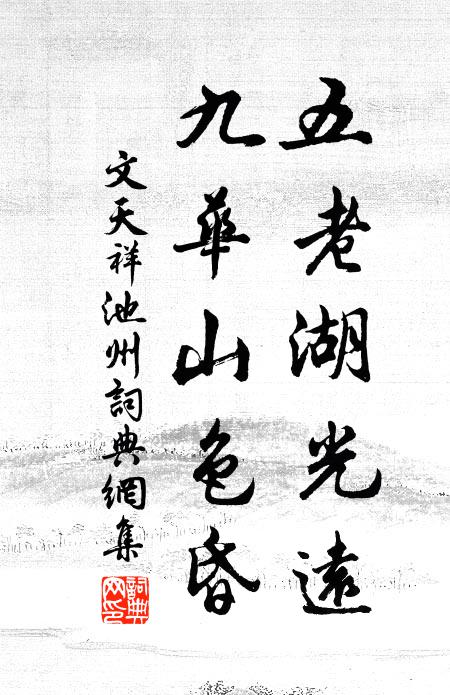 五老湖光遠
九華山色昏
文天祥池州詞典網集
詞典網印